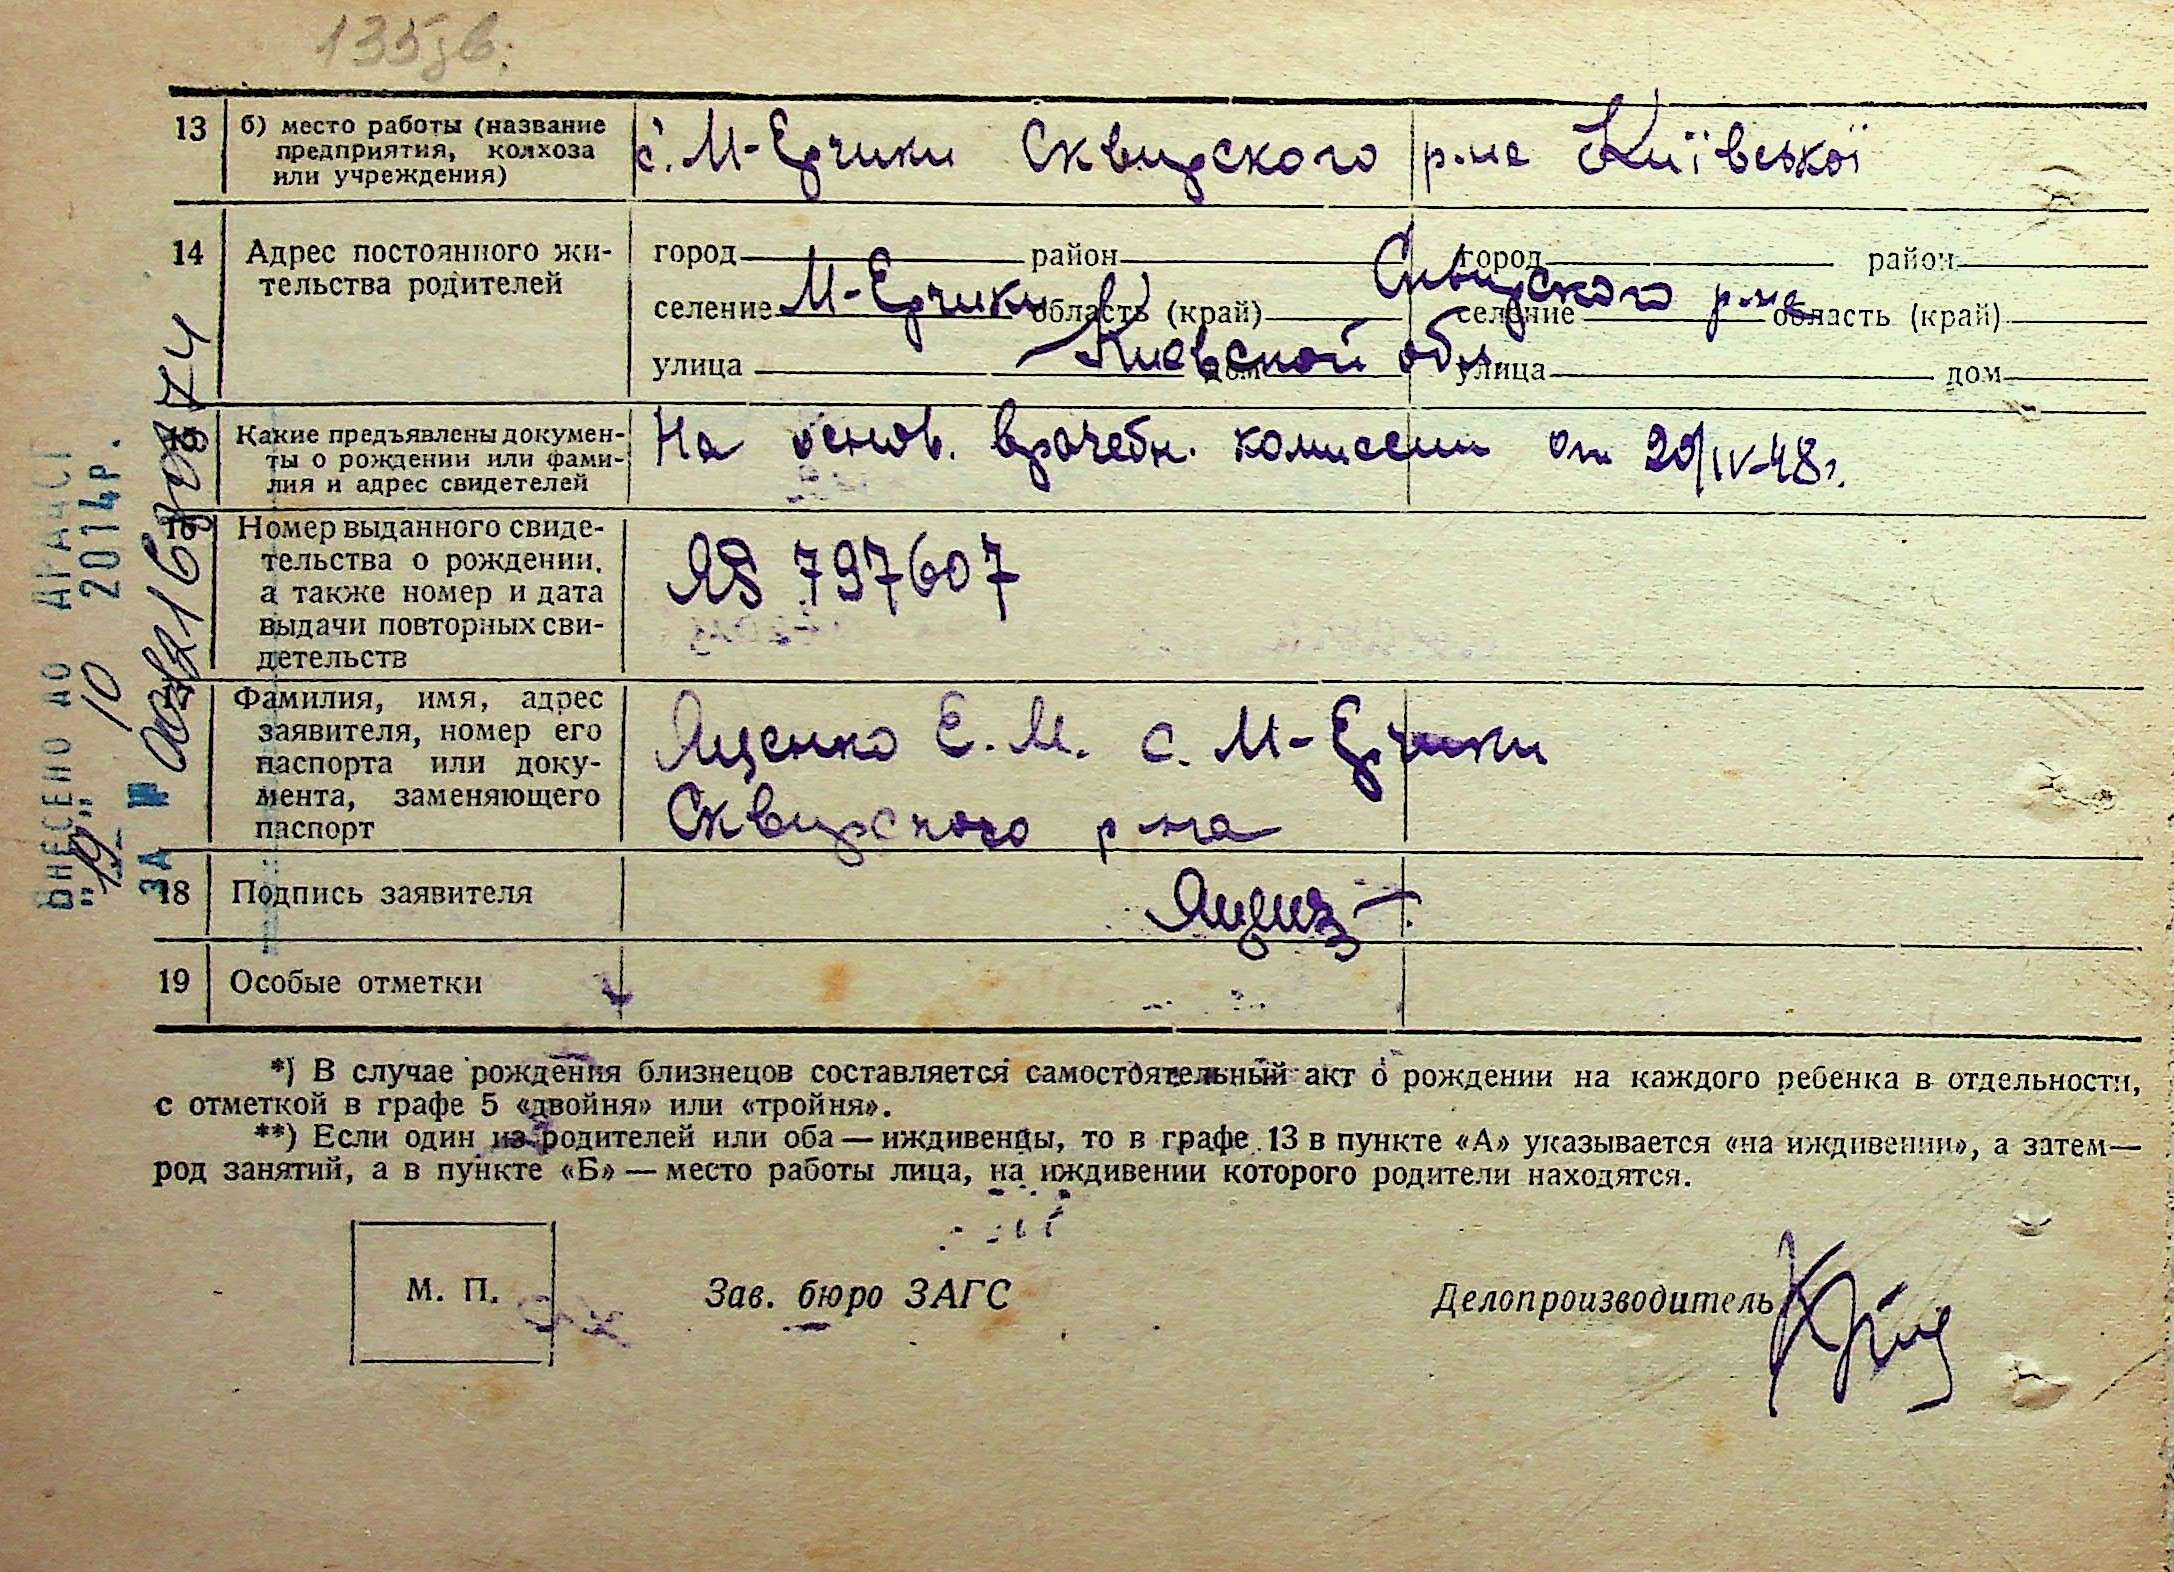 135 зв.
13 б) место работы (название предприятия, колхоза или учреждения) с. М-Ерчики Сквирского р-на Київської
14 Адрес постоянного жи-
тельства родителей
город район город район
селение М-Ерчики область (край) Сквирского р-на селение область (край)
улица Киевской обл. дом улица дом
15 Какие предъявлены докумен-
ты о рождении или фами-
лия и адрес свидетелей
На основ. врачебн. комиссии от 20/IV-48г.
16 Номер выданного свиде-
тельства о рождении,
а также номер и дата
выдачи повторных сви-
детельств
ЯЯ 797607
17 Фамилия, имя, адрес
заявителя, номер его
паспорта или доку-
мента, заменяющего
паспорт
Ященко Е. М. с. М-Ерчики
Сквирского р-на
18 Подпись заявителя
19 Особые отметки
*) В случае рождения близнецов составляется самостоятельный акт о рождении на каждого ребенка в отдельности,
с отметкой в графе 5 «двойня» или «тройня».
**) Если один из родителей или оба — иждивенцы, то в графе 13 в пункте «А» указывается «на иждивении», а затем —
род занятий, а в пункте «Б» — место работы лица, на иждивении которого родители находятся.
М. П. Зав. бюро ЗАГС Делопроизводитель
ВНЕСЕНО ДО ДРАЦСГ
"19" 10 2014р.
ЗА №